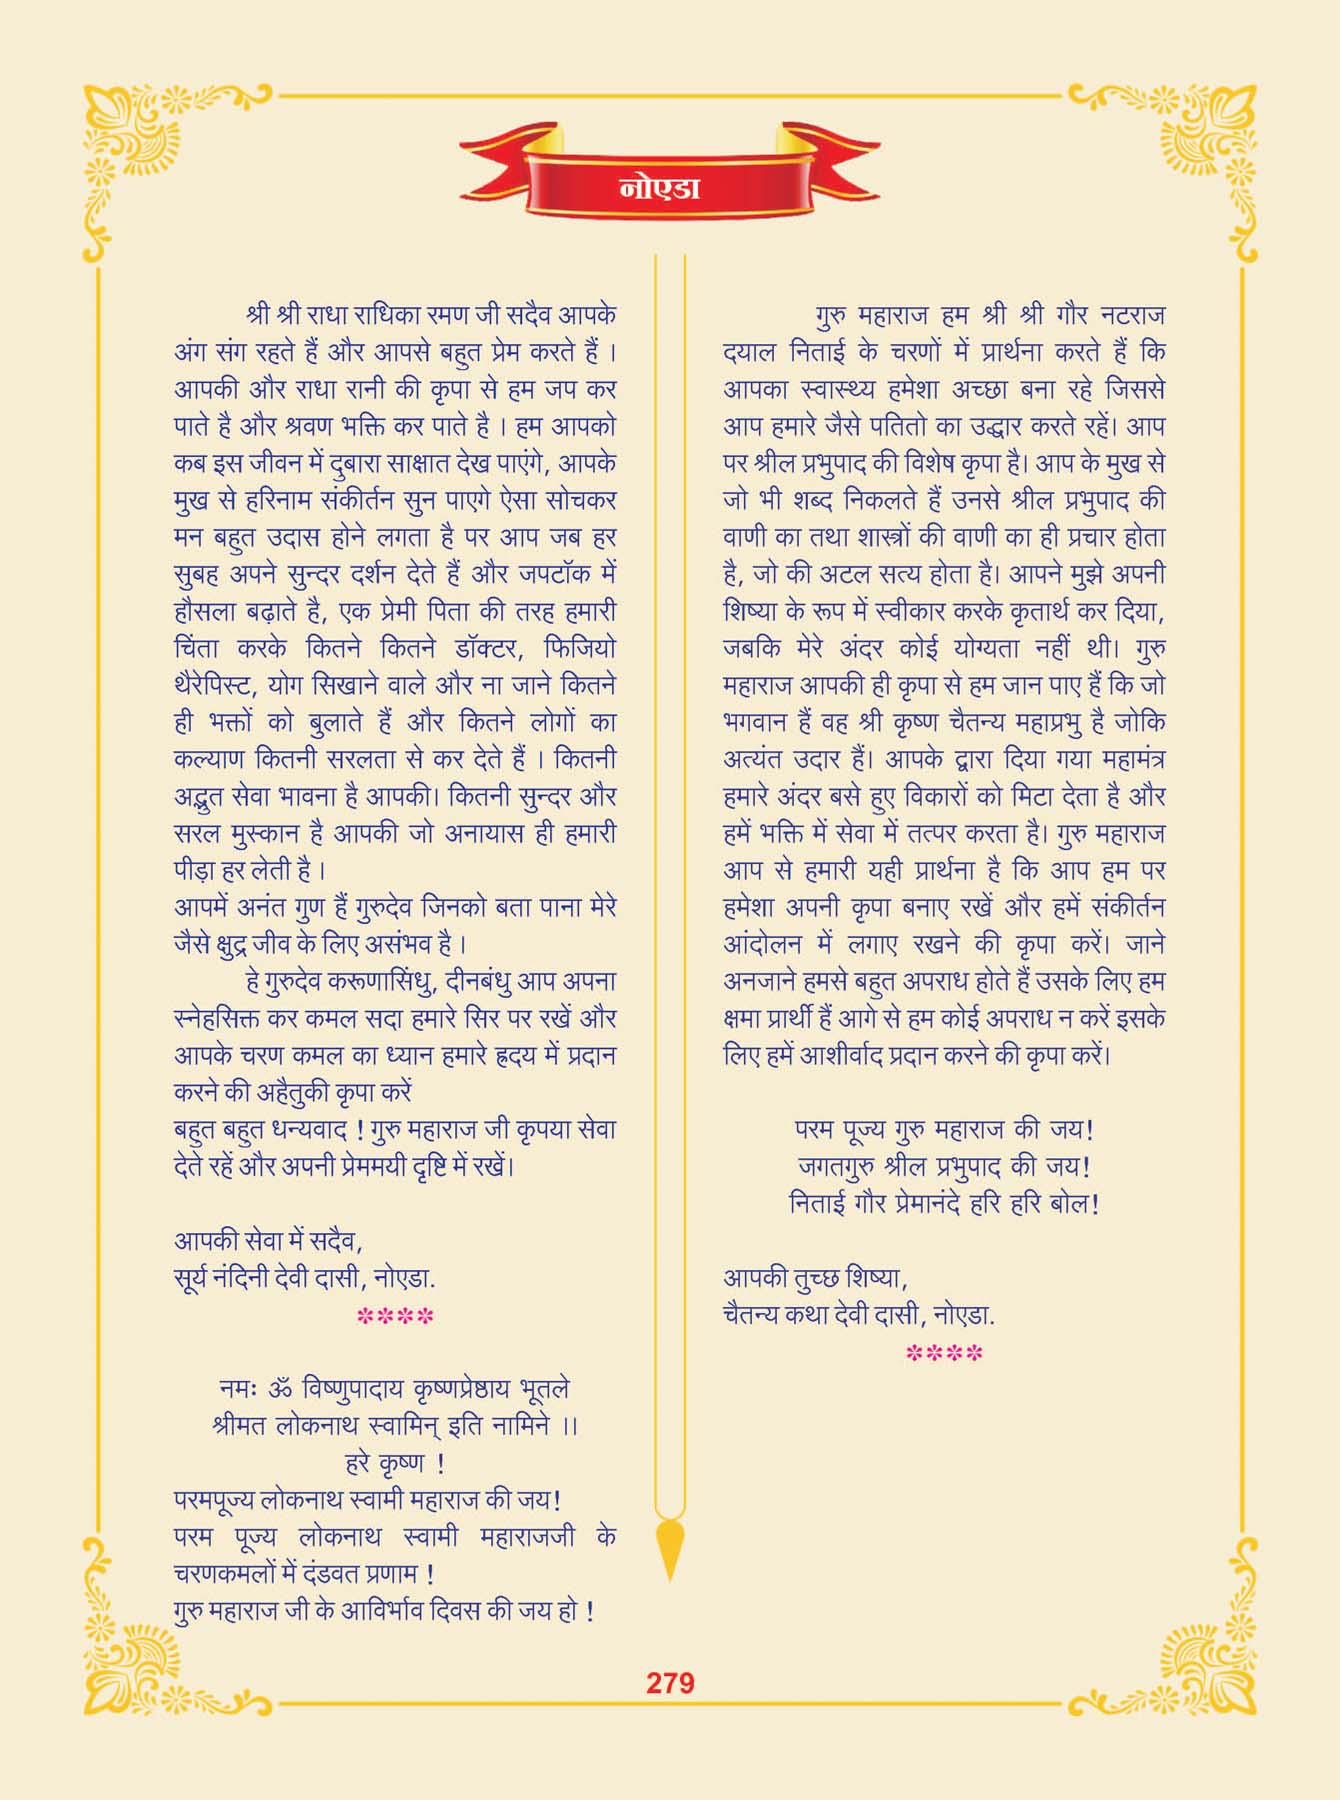 नोएडा
श्री श्री राधा राधिका रमण जी सदैव आपके
अंग संग रहते हैं और आपसे बहुत प्रेम करते हैं ।
आपकी और राधा रानी की कृपा से हम जप कर
पाते है और श्रवण भक्ति कर पाते है । हम आपको
कब इस जीवन में दुबारा साक्षात देख पाएंगे, आपके
मुख से हरिनाम संकीर्तन सुन पाएगे ऐसा सोचकर
मन बहुत उदास होने लगता है पर आप जब हर
सुबह अपने सुन्दर दर्शन देते हैं और जपटॉक में
हौसला बढ़ाते है, एक प्रेमी पिता की तरह हमारी
चिंता करके कितने कितने डॉक्टर, फिजियो
थैरेपिस्ट, योग सिखाने वाले और ना जाने कितने
ही भक्तों को बुलाते हैं और कितने लोगों का
कल्याण कितनी सरलता से कर देते हैं । कितनी
अद्भुत सेवा भावना है आपकी। कितनी सुन्दर और
सरल मुस्कान है आपकी जो अनायास ही हमारी
पीड़ा हर लेती है ।
आपमें अनंत गुण हैं गुरुदेव जिनको बता पाना मेरे
जैसे क्षुद्र जीव के लिए असंभव है ।
हे गुरुदेव करूणासिंधु, दीनबंधु आप अपना
स्नेहसिक्त कर कमल सदा हमारे सिर पर रखें और
आपके चरण कमल का ध्यान हमारे ह्रदय में प्रदान
करने की अहैतुकी कृपा करें
बहुत बहुत धन्यवाद ! गुरु महाराज जी कृपया सेवा
देते रहें और अपनी प्रेममयी दृष्टि में रखें।
आपकी सेवा में सदैव,
सूर्य नंदिनी देवी दासी, नोएडा.
****
नमः ॐ विष्णुपादाय कृष्णप्रेष्ठाय भूतले
श्रीमत लोकनाथ स्वामिन् इति नामिने ।।
हरे कृष्ण !
परमपूज्य लोकनाथ स्वामी महाराज की जय!
परम पूज्य लोकनाथ स्वामी महाराजजी के
चरणकमलों में दंडवत प्रणाम !
गुरु महाराज जी के आविर्भाव दिवस की जय हो !
गुरु महाराज हम श्री श्री गौर नटराज
दयाल निताई के चरणों में प्रार्थना करते हैं कि
आपका स्वास्थ्य हमेशा अच्छा बना रहे जिससे
आप हमारे जैसे पतितो का उद्धार करते रहें। आप
पर श्रील प्रभुपाद की विशेष कृपा है। आप के मुख से
जो भी शब्द निकलते हैं उनसे श्रील प्रभुपाद की
वाणी का तथा शास्त्रों की वाणी का ही प्रचार होता
है, जो की अटल सत्य होता है। आपने मुझे अपनी
शिष्या के रूप में स्वीकार करके कृतार्थ कर दिया,
जबकि मेरे अंदर कोई योग्यता नहीं थी। गुरु
महाराज आपकी ही कृपा से हम जान पाए हैं कि जो
भगवान हैं वह श्री कृष्ण चैतन्य महाप्रभु है जोकि
अत्यंत उदार हैं। आपके द्वारा दिया गया महामंत्र
हमारे अंदर बसे हुए विकारों को मिटा देता है और
हमें भक्ति में सेवा में तत्पर करता है। गुरु महाराज
आप से हमारी यही प्रार्थना है कि आप हम पर
हमेशा अपनी कृपा बनाए रखें और हमें संकीर्तन
आंदोलन में लगाए रखने की कृपा करें। जाने
अनजाने हमसे बहुत अपराध होते हैं उसके लिए हम
क्षमा प्रार्थी हैं आगे से हम कोई अपराध न करें इसके
लिए हमें आशीर्वाद प्रदान करने की कृपा करें।
परम पूज्य गुरु महाराज की जय!
जगतगुरु श्रील प्रभुपाद की जय!
निताई गौर प्रेमानंदे हरि हरि बोल!
आपकी तुच्छ शिष्या,
चैतन्य कथा देवी दासी, नोएडा.
****
279